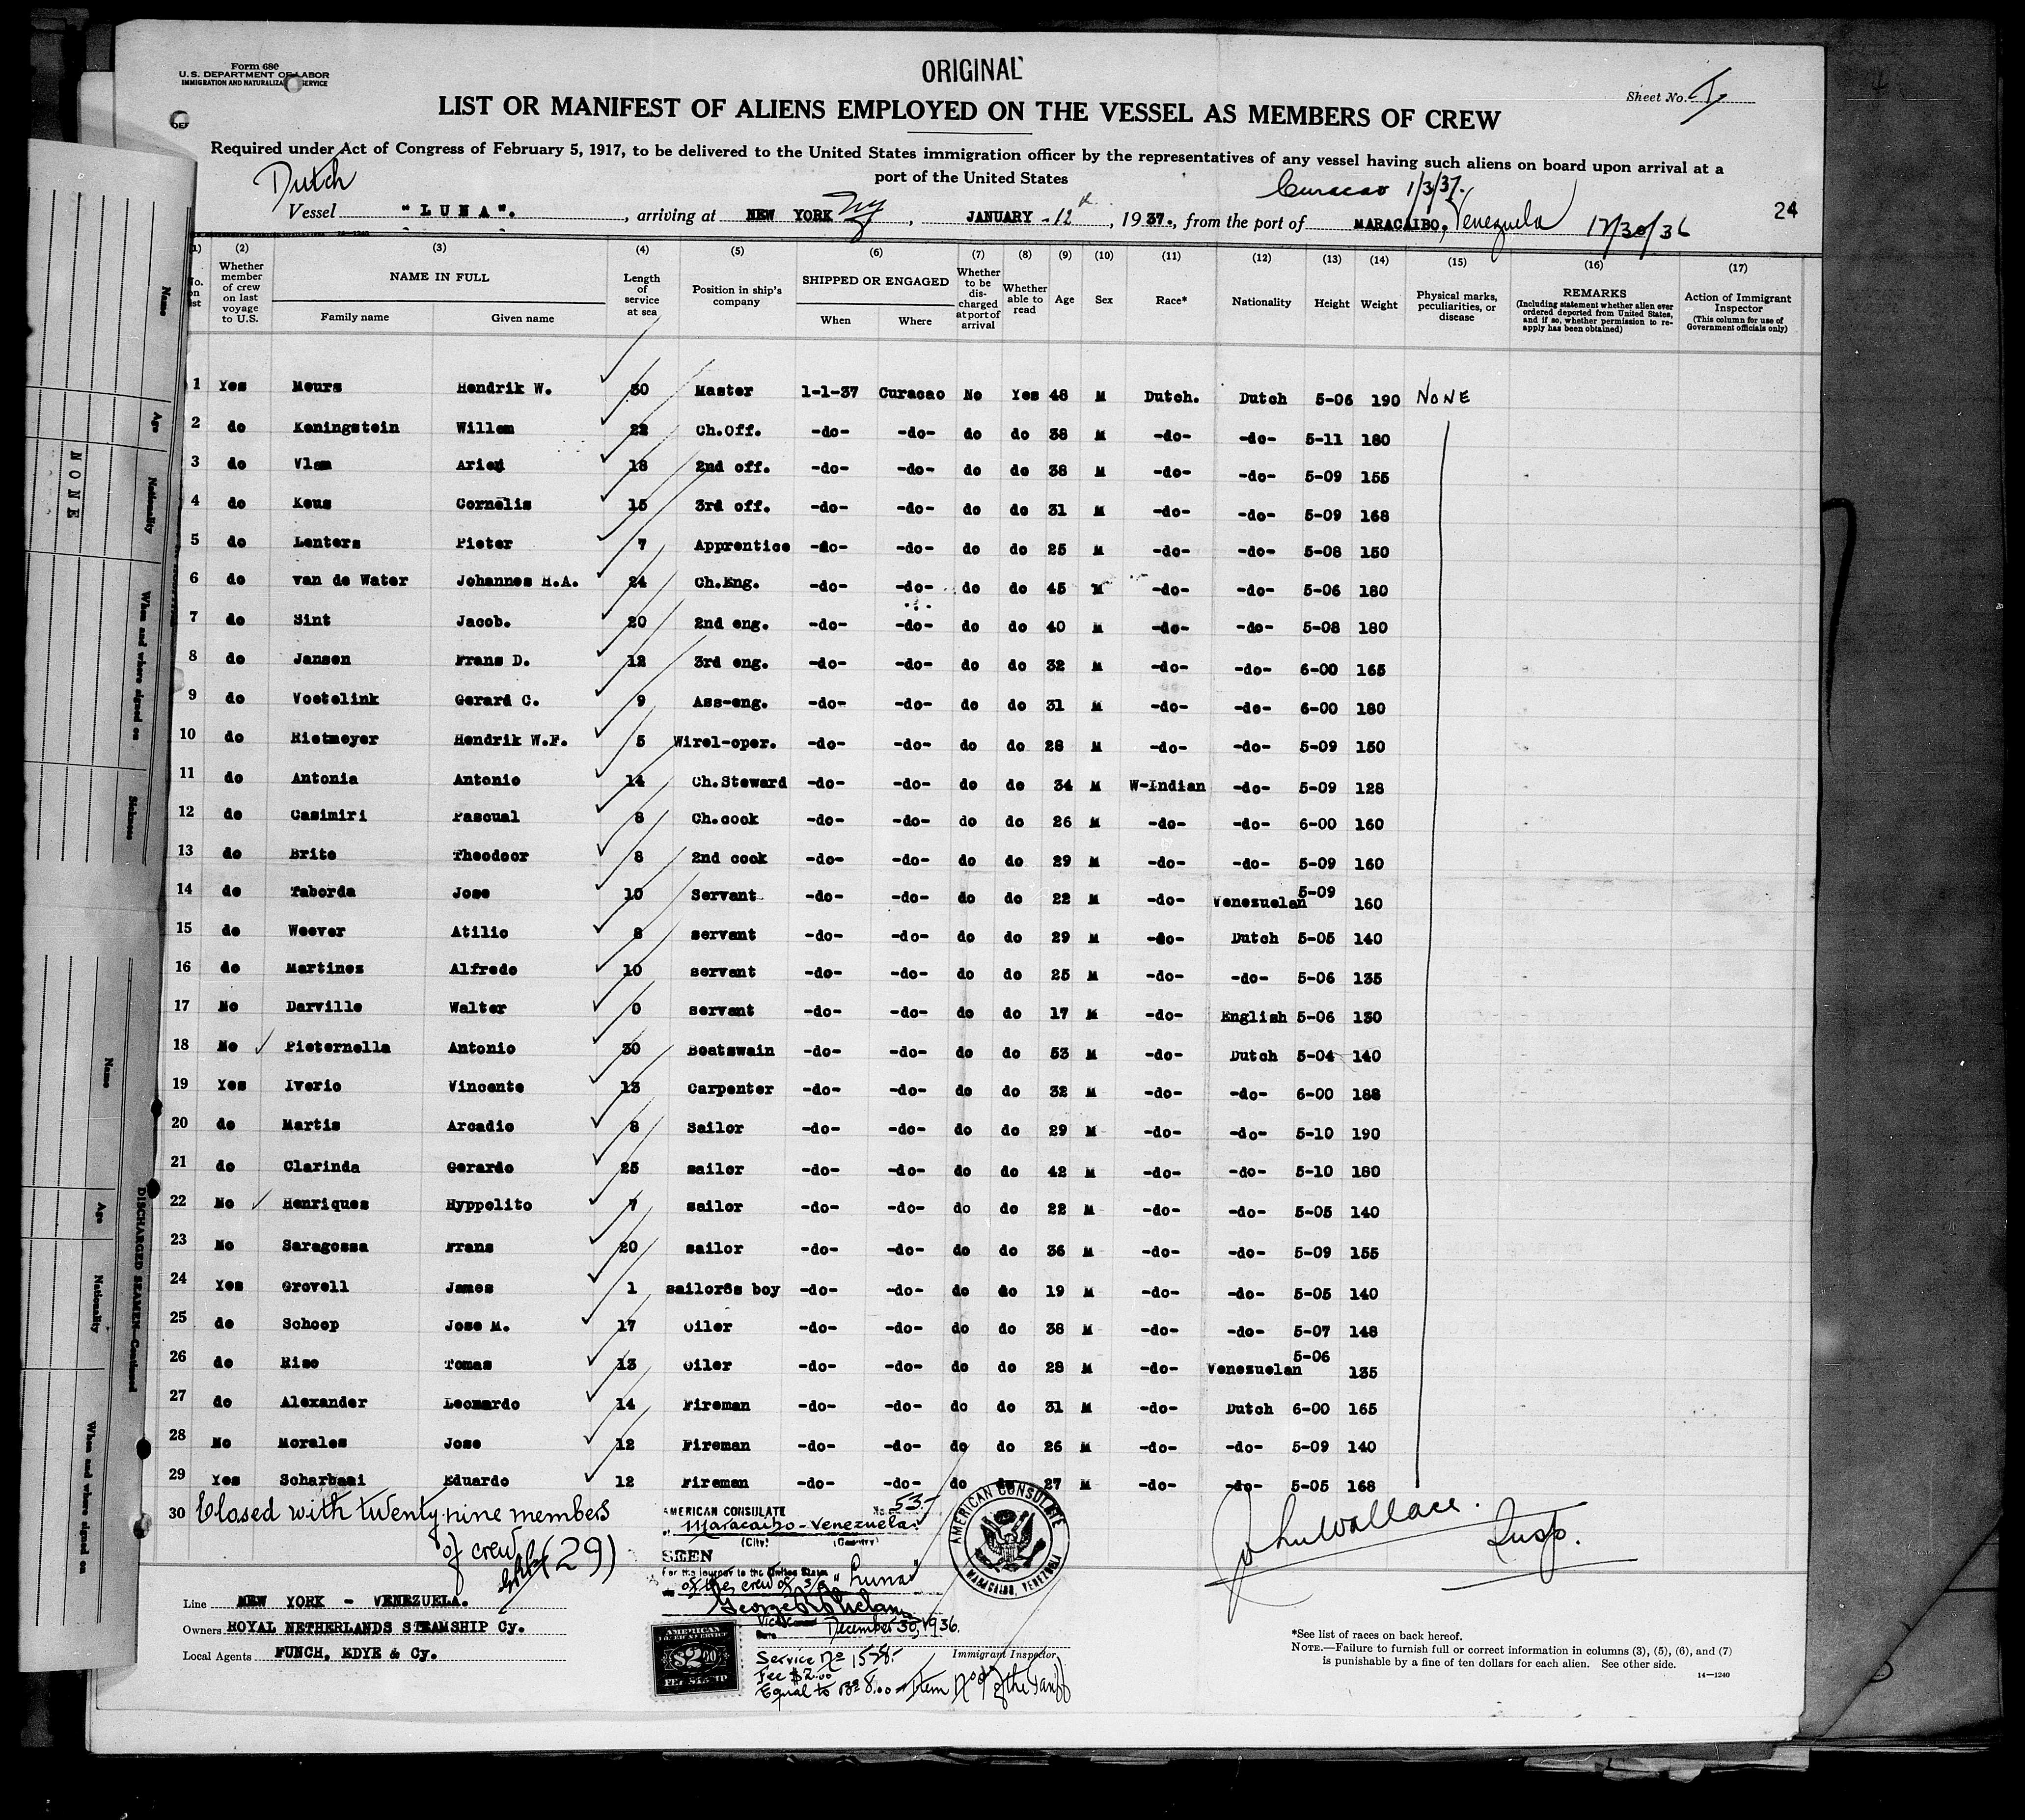 Form 680
U.S. DEPARTMENT OF LABOR
IMMIGRATION AND NATURALIZATION SERVICE
ORIGINAL
Sheet No. 1
LIST OR MANIFEST OF ALIENS EMPLOYED ON THE VESSEL AS MEMBERS OF CREW
Required under Act of Congress of February 5, 1917, to be delivered to the United States immigration officer by the representatives of any vessel having such aliens on board upon arrival at a
port of the United States
Dutch
Curacao 1/3/37.
Vessel "LUNA". , arriving at NEW YORK NY , JANUARY - 12 , 1937., from the port of MARACAIBO, Venezuela 12/30/36
24
(1) (2) (3) (4) (5) (6) (7) (8) (9) (10) (11) (12) (13) (14) (15) (16) (17)
No. on list
Whether member of crew on last voyage to U.S.
NAME IN FULL
Family name Given name
Length of service at sea
Position in ship's company
SHIPPED OR ENGAGED
When Where
Whether to be discharged at port of arrival
Whether able to read
Age
Sex
Race*
Nationality
Height
Weight
Physical marks, peculiarities, or disease
REMARKS
(Including statement whether alien ever ordered deported from United States, and if so, whether permission to reapply has been obtained)
Action of Immigrant Inspector
(This column for use of Government officials only)
1 Yes Meurs Hendrik W. 30 Master 1-1-37 Curacao No Yes 48 M Dutch. Dutch 5-06 190 NONE
2 do Koningstein Willem 22 Ch.Off. -do- -do- do do 38 M -do- -do- 5-11 180
3 do Vlam Arie 18 2nd off. -do- -do- do do 38 M -do- -do- 5-09 155
4 do Keus Cornelis 15 3rd off. -do- -do- do do 31 M -do- -do- 5-09 168
5 do Lenters Pieter 7 Apprentice -do- -do- do do 25 M -do- -do- 5-08 150
6 do van de Water Johannes H.A. 24 Ch.Eng. -do- -do- do do 45 M -do- -do- 5-06 180
7 do Sint Jacob. 20 2nd eng. -do- -do- do do 40 M -do- -do- 5-08 180
8 do Jansen Frans D. 12 3rd eng. -do- -do- do do 32 M -do- -do- 6-00 165
9 do Voetelink Gerard C. 9 Ass-eng. -do- -do- do do 31 M -do- -do- 6-00 180
10 do Rietmeyer Hendrik W.F. 5 Wirel-oper. -do- -do- do do 28 M -do- -do- 5-09 150
11 do Antonia Antonio 14 Ch.Steward -do- -do- do do 34 M W-Indian -do- 5-09 128
12 do Casimiri Pascual 8 Ch.cook -do- -do- do do 26 M -do- -do- 6-00 160
13 do Brito Theodoor 8 2nd cook -do- -do- do do 29 M -do- -do- 5-09 160
14 do Taborda Jose 10 Servant -do- -do- do do 22 M -do- Venezuelan 5-09 160
15 do Weever Atilio 8 servant -do- -do- do do 29 M -do- Dutch 5-05 140
16 do Martines Alfredo 10 servant -do- -do- do do 25 M -do- -do- 5-06 135
17 No Darville Walter 0 servant -do- -do- do do 17 M -do- English 5-06 130
18 No Pieternella Antonio 30 Boatswain -do- -do- do do 53 M -do- Dutch 5-04 140
19 Yes Iverio Vincente 13 Carpenter -do- -do- do do 32 M -do- -do- 6-00 188
20 do Martis Arcadio 8 Sailor -do- -do- do do 29 M -do- -do- 5-10 190
21 do Clarinda Gerardo 25 sailor -do- -do- do do 42 M -do- -do- 5-10 180
22 No Henriques Hyppolito 7 sailor -do- -do- do do 22 M -do- -do- 5-05 140
23 No Saragossa Frans 20 sailor -do- -do- do do 36 M -do- -do- 5-09 155
24 Yes Grovell James 1 sailor8s boy -do- -do- do do 19 M -do- -do- 5-05 140
25 do Schoop Jose M. 17 Oiler -do- -do- do do 38 M -do- -do- 5-07 148
26 do Riso Tomas 13 Oiler -do- -do- do do 28 M -do- Venezuelan 5-06 135
27 do Alexander Leonardo 14 Fireman -do- -do- do do 31 M -do- Dutch 6-00 165
28 No Morales Jose 12 Fireman -do- -do- do do 26 M -do- -do- 5-09 140
29 Yes Scharbaai Eduardo 12 Fireman -do- -do- do do 27 M -do- -do- 5-05 168
30 Closed with twenty nine members
of crew (29)
AMERICAN CONSULATE No. 53
Maracaibo - Venezuela
(City) (Country)
SEEN
For the journey to the United States
of the crew of s/s "Luna"
Vice Consul
Date December 30, 1936.
AMERICAN CONSULATE
MARACAIBO, VENEZUELA
John Wallace. Insp.
Line NEW YORK - VENEZUELA.
Owners ROYAL NETHERLANDS STEAMSHIP Cy.
Local Agents FUNCH, EDYE & Cy.
AMERICAN
FOREIGN SERVICE
$2.00
FEE STAMP
Service No 1558
Fee $2.00
Equal to Bs 8.00 - Item No 9 of the Tariff
Immigrant Inspector
*See list of races on back hereof.
NOTE.—Failure to furnish full or correct information in columns (3), (5), (6), and (7)
is punishable by a fine of ten dollars for each alien. See other side.
14—1240
Name
Age
Nationality
When and where signed on
Sickness
NONE
DISCHARGED SEAMEN—Continued
Name
Age
Nationality
When and where signed on